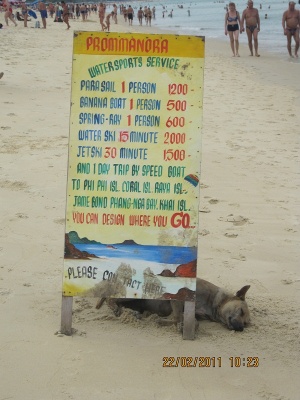 PROMMANORA
WATERSPORTS SERVICE
PARASAIL 1 PERSON 1200-
BANANA BOAT 1 PERSON 500-
SPRING-RAY 1 PERSON 600-
WATER SKI 15 MINUTE 2000-
JETSKI 30 MINUTE 1,500-
AND 1 DAY TRIP BY SPEED BOAT
TO PHI PHI ISL. CORAL ISL. RAYA ISL.
JAME BOND PHANG-NGA BAY, KHAI ISL.
YOU CAN DESIGN WHERE YOU GO
PLEASE CONTACT HERE
22/02/2011 10:23